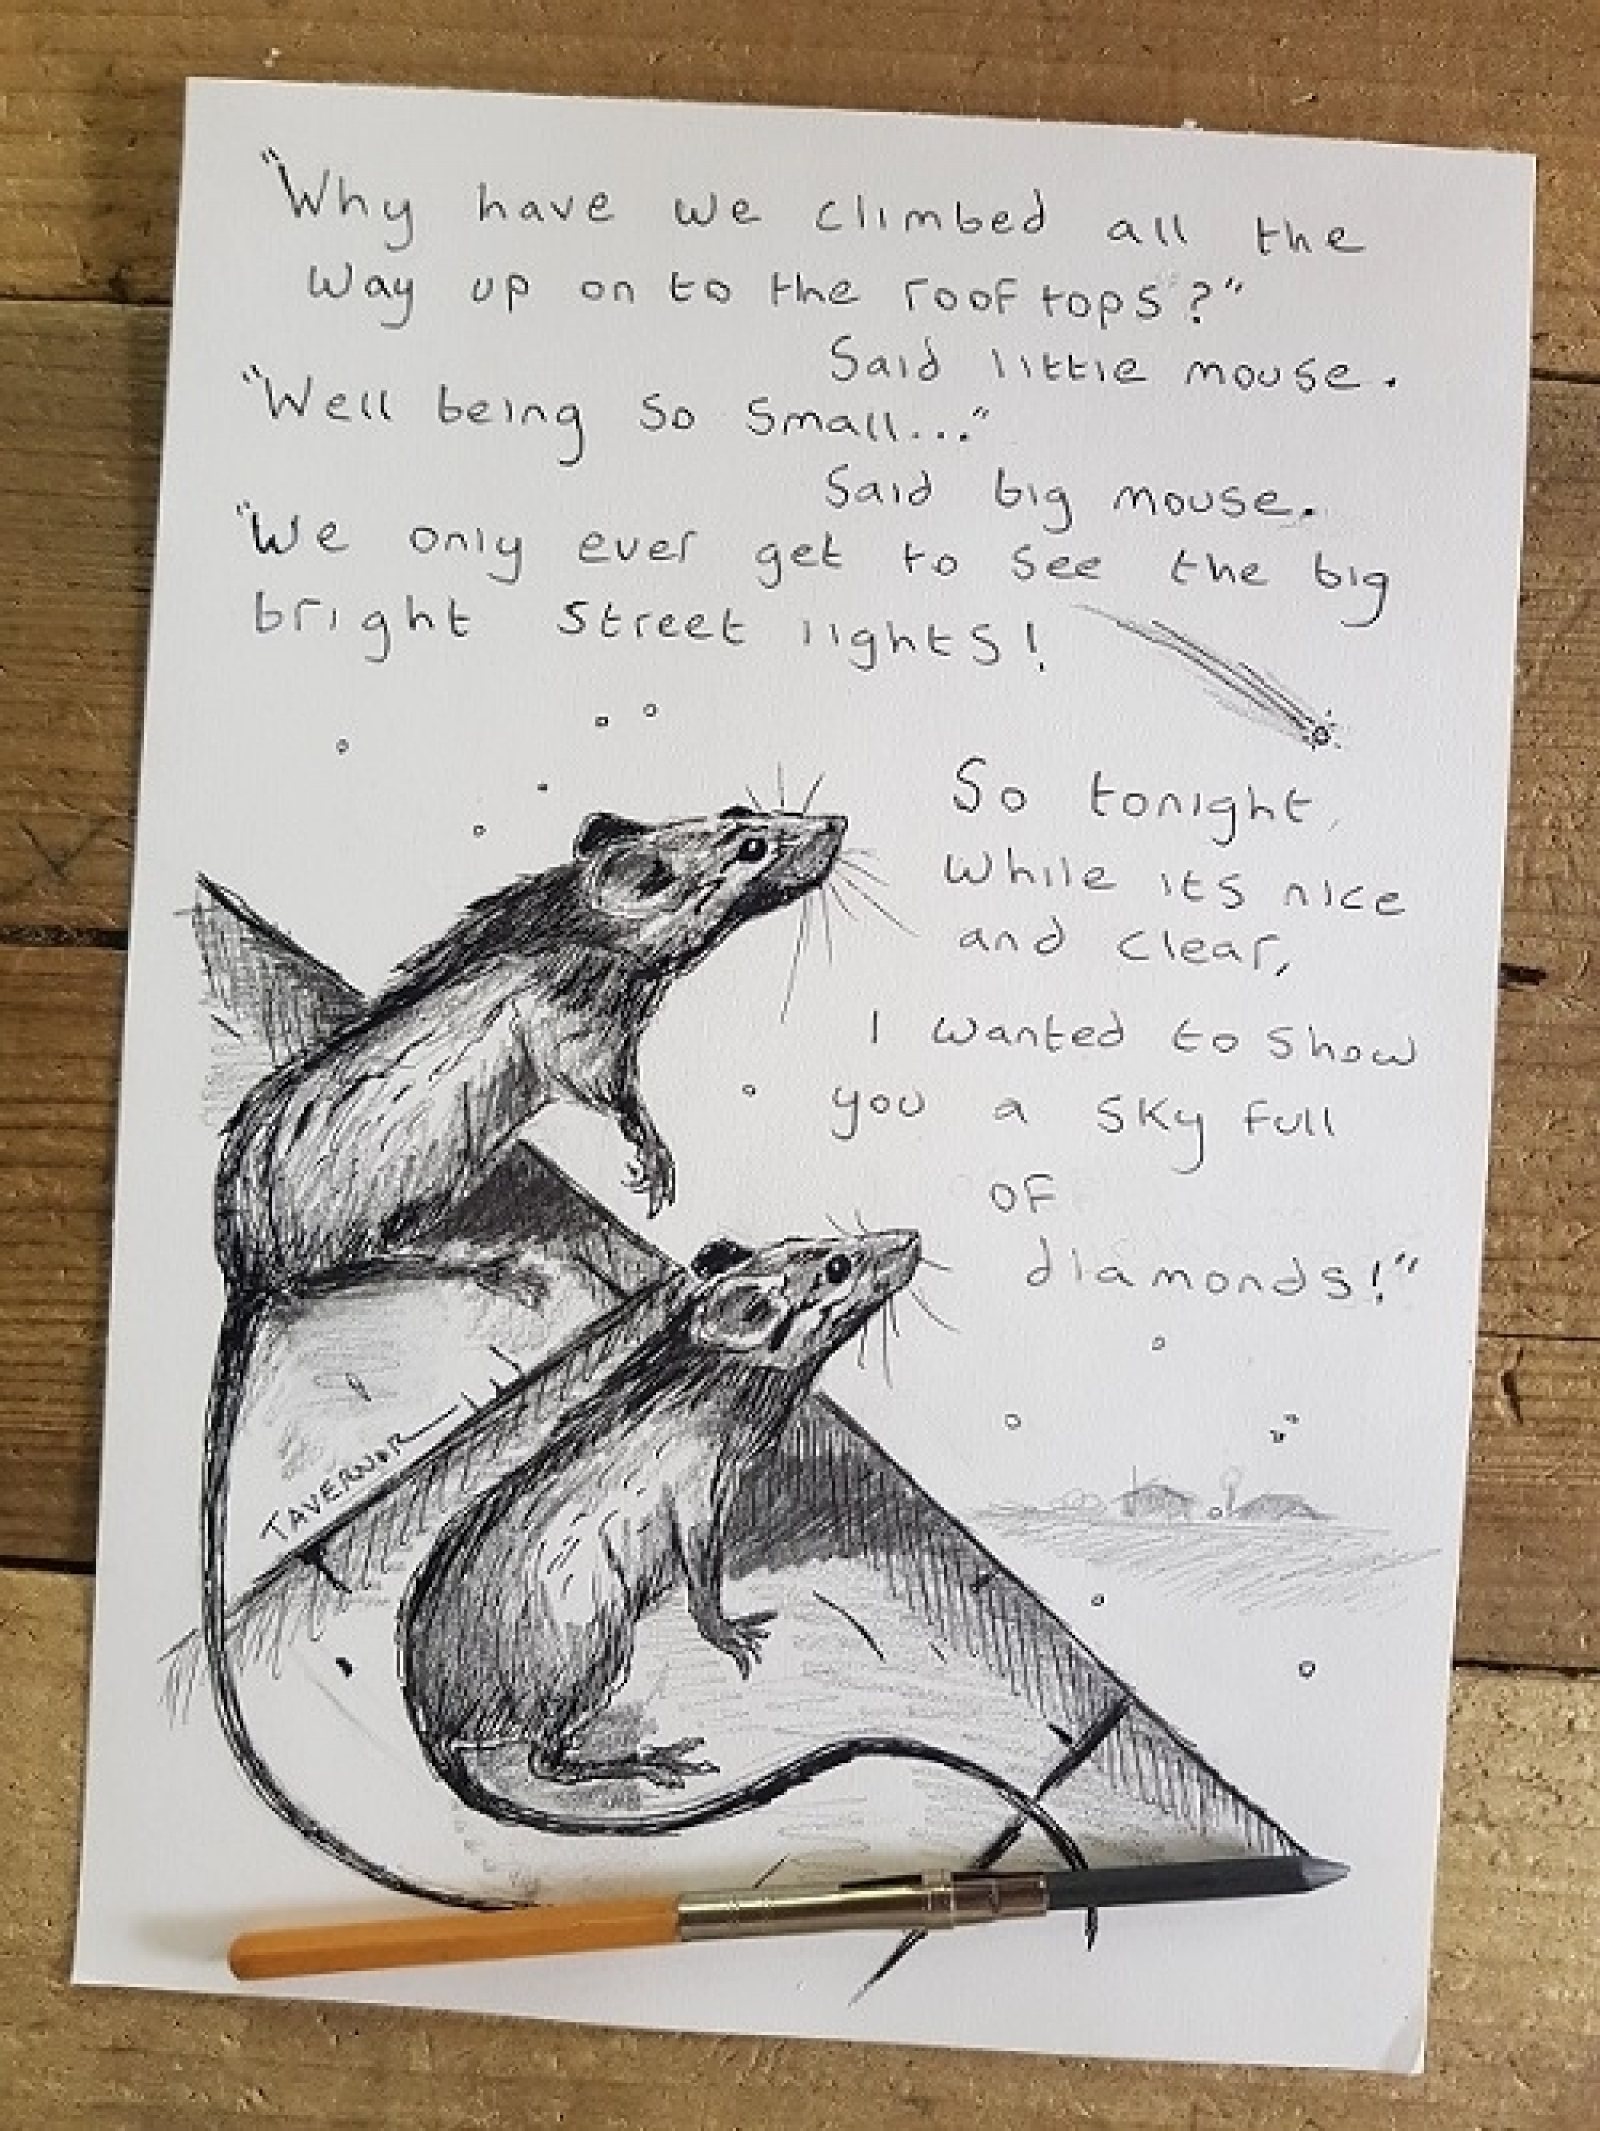 "Why have we climbed all the
way up on to the roof tops?"
Said little mouse.
"Well being so small..."
Said big mouse.
"We only ever get to see the big
bright street lights!
So tonight,
while its nice
and clear,
I wanted to show
you a sky full
of
diamonds!"
TAVERNOR